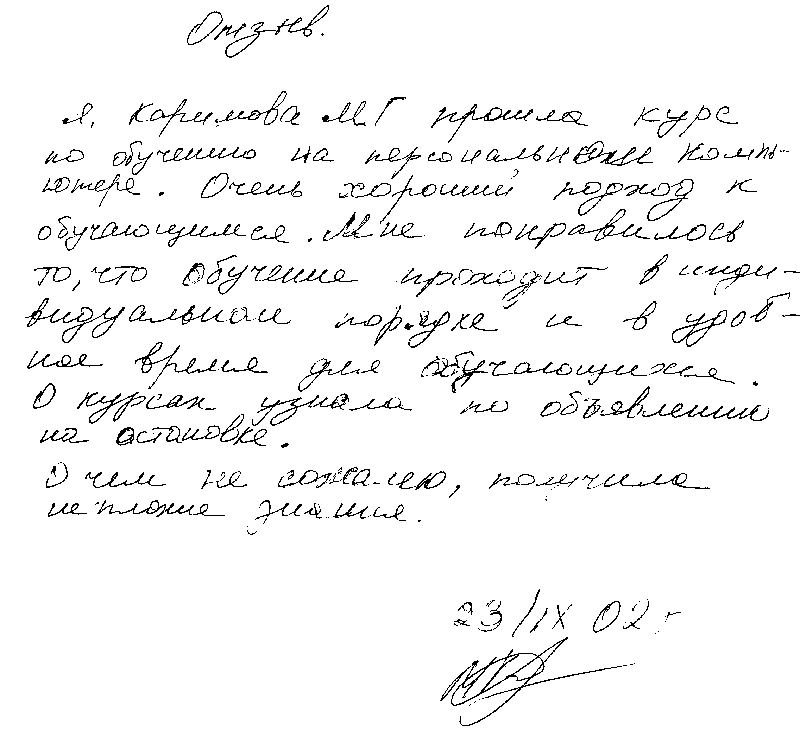 Отзыв.
Я, Каримова М Г прошла курс
по обучению на персональном компь-
ютере. Очень хороший подход к
обучающимся. Мне понравилось
то, что обучение проходит в инди-
видуальном порядке и в удоб-
ное время для обучающихся.
О курсах узнала по объявлению
на остановке.
О чем не сожалею, получила
неплохие знания.
23/IX 02 г